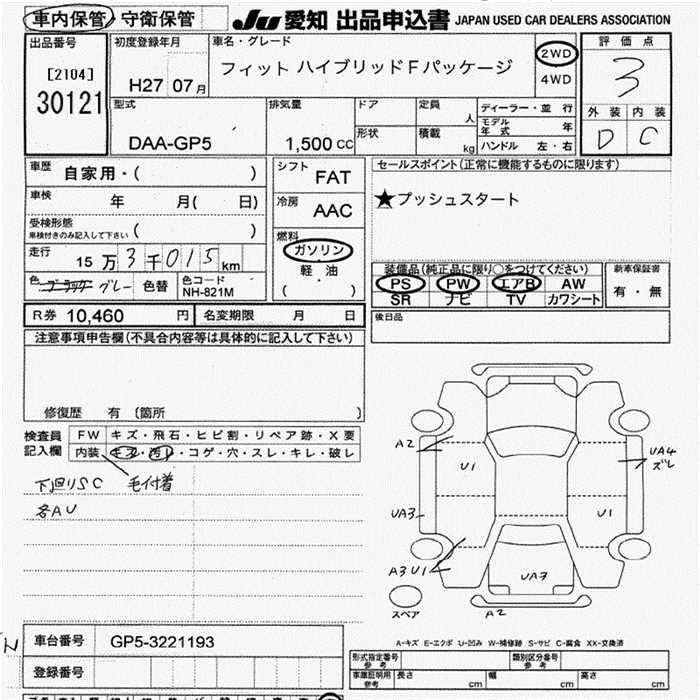 車内保管/守衛保管 JU 愛知 出品申込書 JAPAN USED CAR DEALERS ASSOCIATION
出品番号
[2104]
30121
初度登録年月
H27 07月
車名・グレード
フィット ハイブリッドFパッケージ
2WD
4WD
評価点
3
外装 内装
D C
型式
DAA-GP5
排気量
1,500 CC
ドア
形状
定員 人
積載 kg
ディーラー・並行
モデル年式 年
ハンドル 左・右
車歴 自家用・( )
車検 年 月( 日)
受検形態
車検付きのみ記入して下さい ( )
走行 15万3千015km
色 ブラック グレー 色替
色コード
NH-821M
シフト
FAT
冷房
AAC
燃料
ガソリン
軽・油
( )
セールスポイント(正常に機能するものに限ります)
★プッシュスタート
装備品(純正品に限り○をつけてください)
PS PW エアB AW
SR ナビ TV カワシート
新車保証書
有・無
R券 10,460 円
名変期限 月 日
後日品
注意事項申告欄(不具合内容等は具体的に記入して下さい)
修復歴 有 〔箇所 〕
検査員記入欄
FW キズ・飛石・ヒビ割・リペア跡・X要
内装 キズ・汚レ・コゲ・穴・スレ・キレ・破レ
下廻りSC 毛付着
各AU
A2
U1
UA4
ズレ
UA3
U1
A3 U1
UA3
A2
スペア
A-キズ E-エクボ U-凹み W-補修跡 S-サビ C-腐食 XX-交換済
車台番号 GP5-3221193
登録番号
形式指定番号
参考
類別区分番号
参考
車庫証明用
参考
長さ cm
幅 cm
高さ cm